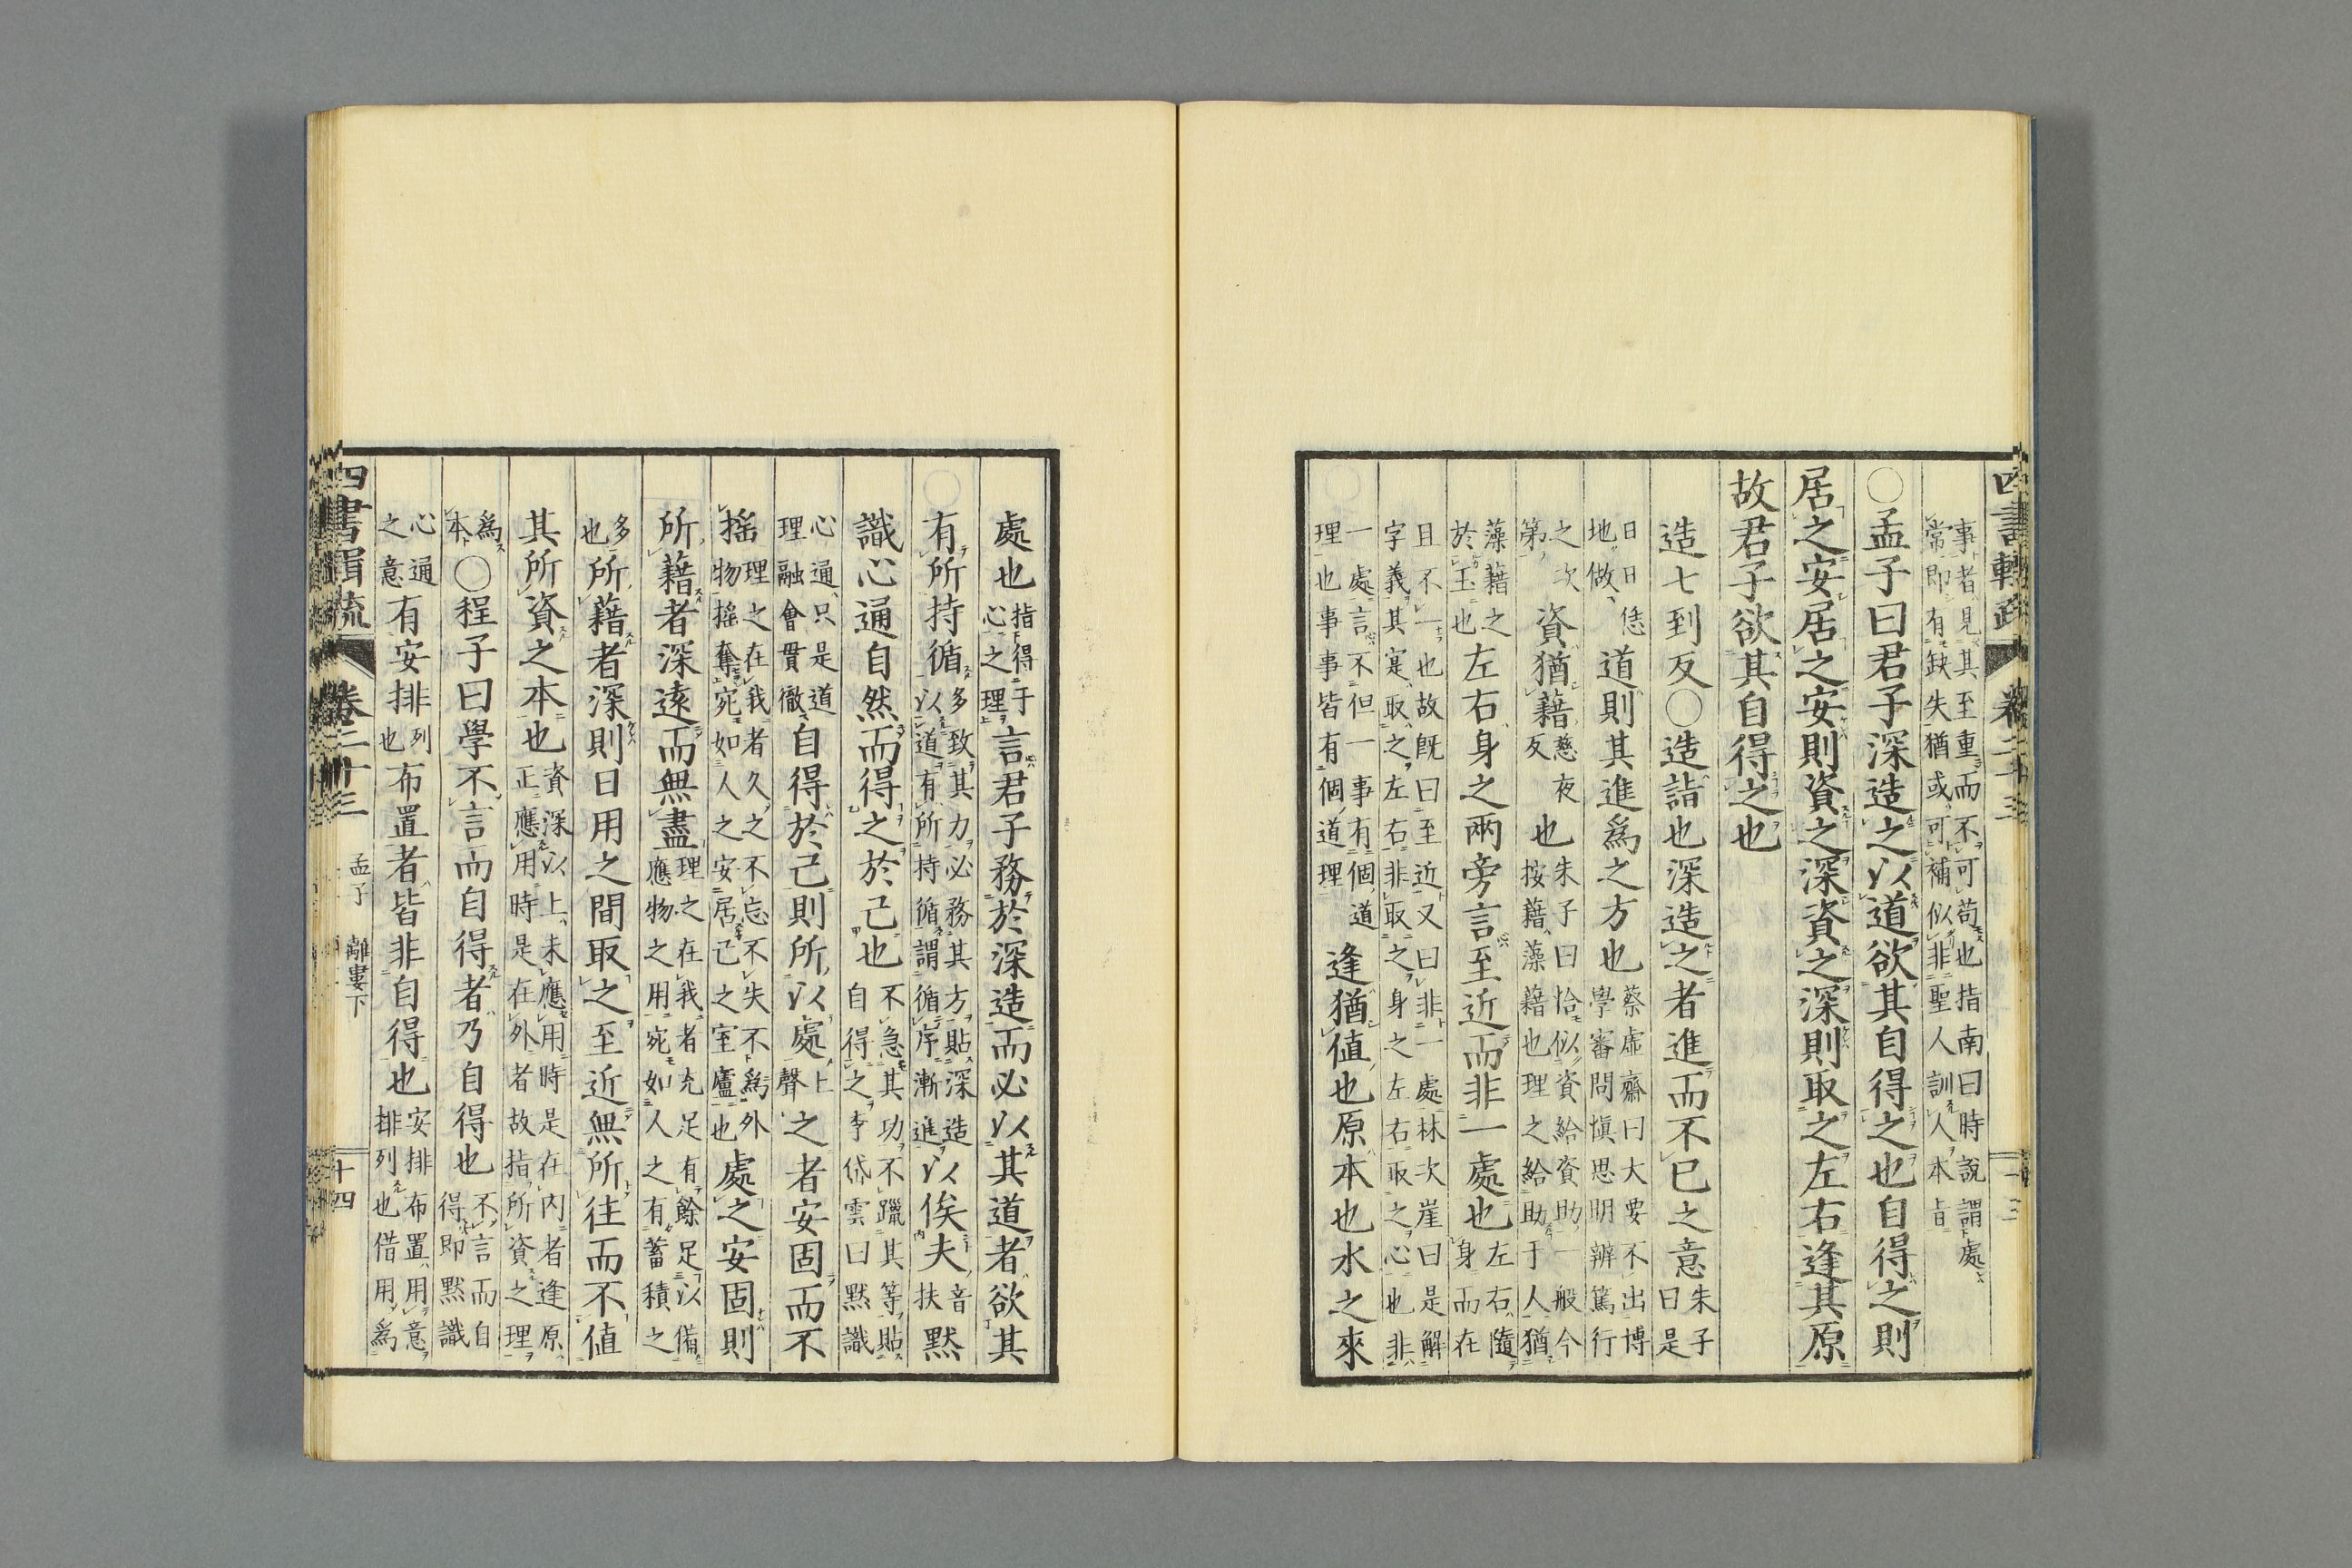 四書輯疏 卷二十三 十三
事者見其至重而不可苟也指南曰時說謂處
常卽有缺失猶或可補似非聖人訓人本旨
○孟子曰君子深造之以道欲其自得之也自得之則
居之安居之安則資之深資之深則取之左右逢其原
故君子欲其自得之也
造七到反○造詣也深造之者進而不已之意朱子曰是
日日恁地做道則其進爲之方也蔡虛齋曰大要不出博學審問愼思明辨篤行
之次第資猶藉慈夜反也朱子曰恰似資給資助一般今按藉藻藉也理之給助于人猶
藻藉之於玉也左右身之兩旁言至近而非一處也左右隨身而在
且不一也故旣曰至近又曰非一處林次崖曰是解字義其寔取之左右非取之身之左右取之心也非
一處言不但一事有個道理也事事皆有個道理逢猶値也原本也水之來
處也指得于心之理言君子務於深造而必以其道者欲其
有所持循多致其力必務其方貼深造以道有所持循謂循序漸進以俟夫音扶默
識心通自然而得之於己也不急其功不躐其等貼自得之李岱雲曰默識
心通只是道理融會貫徹自得於己則所以處上聲之者安固而不
搖理之在我者久之不忘不失不爲外物搖奪宛如人之安居己之室廬也處之安固則
所藉者深遠而無盡理之在我者充足有餘足以備應物之用宛如人之有蓄積之
多也所藉者深則日用之間取之至近無所往而不値
其所資之本也資深以上未應用時是在內者逢原正應用時是在外者故指所資之理
爲本○程子曰學不言而自得者乃自得也不言而自得卽默識
心通之意有安排列也布置者皆非自得也安排布置用意排列也借用爲
四書輯疏 卷二十三 孟子 離婁下 十四